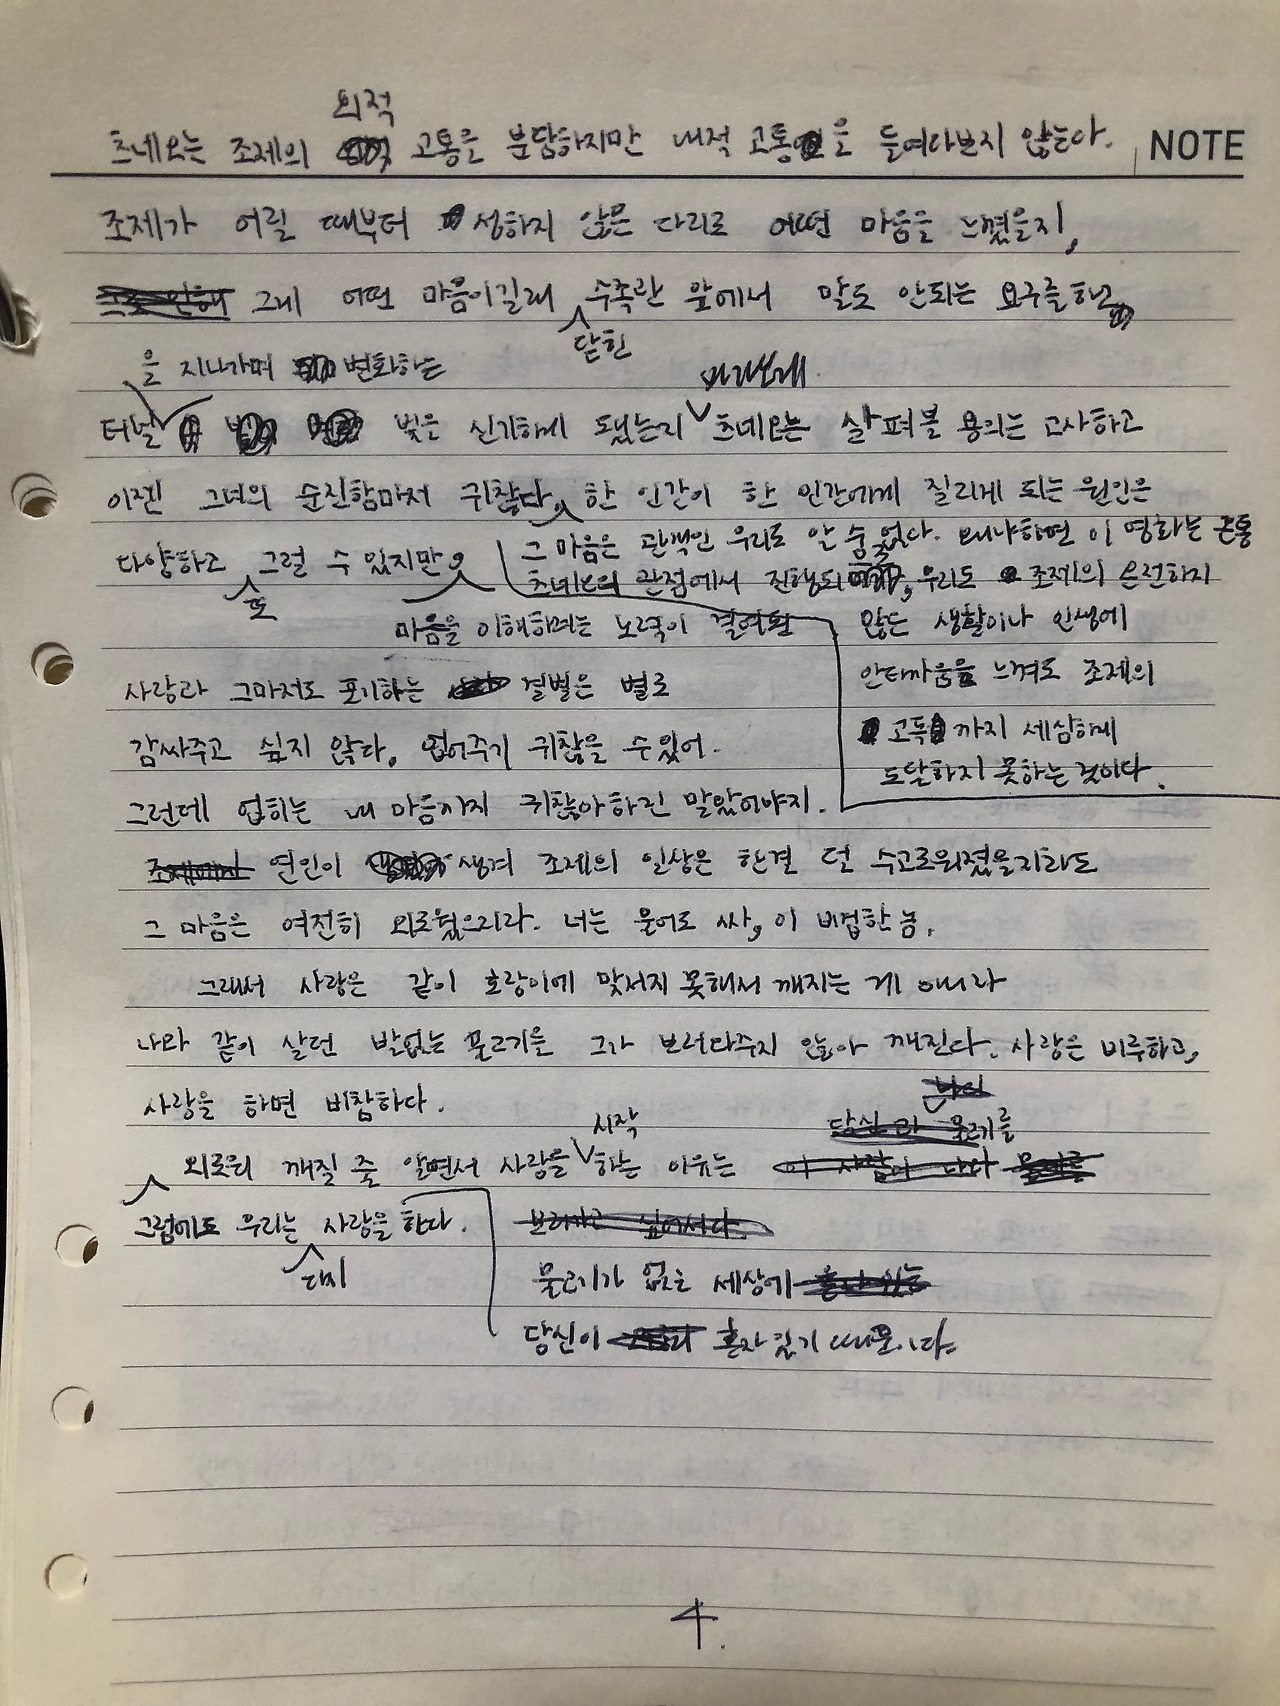 외적
츠네오는 조제의 고통을 분담하지만 내적 고통을 들여다보지 않는다.
NOTE
조제가 어릴 때부터 성하지 않은 다리로 어떤 마음을 느꼈을지,
그녀 어떤 마음이길래 수족관 앞에서 말도 안되는 요구를 하고
닫힌
을 지나가며 변화하는
터널 빛을 신기하게 됐는지 츠네오는 살펴볼 용의는 고사하고
이젠 그녀의 순진함마저 귀찮다. 한 인간이 한 인간에게 질리게 되는 원인은
그 마음은 관객인 우리도 알 수 없다. 왜냐하면 이 영화는 온통
다양하고 그럴 수 있지만
또
츠네오의 관점에서 진행되, 우리도 조제의 온전하지
마음을 이해하려는 노력이 결여된
않은 생활이나 인생에
안타까움을 느껴도 조제의
고독까지 세심하게
도달하지 못하는 것이다.
사랑과 그마저도 포기하는 결별은 별로
감싸주고 싶지 않다. 업어주기 귀찮을 수 있어.
그런데 업히는 내 마음까지 귀찮아하진 말았어야지.
연인이 생겨 조제의 일상은 한결 덜 수고로워졌을지라도
그 마음은 여전히 외로웠으리라. 너는 울어도 싸, 이 비겁한 놈.
그래서 사랑은 같이 호랑이에 맞서지 못해서 깨지는 게 아니라
나와 같이 살던 발없는 물고기를 그가 보러다주지 않아 깨진다. 사랑은 비루하고,
사랑을 하면 비참하다.
시작
물고기를
외로워 깨질 줄 알면서 사랑을 하는 이유는
그럼에도 우리는 사랑을 한다.
다시
물고기가 없는 세상에
당신이 혼자 있기 때문이다.
4.